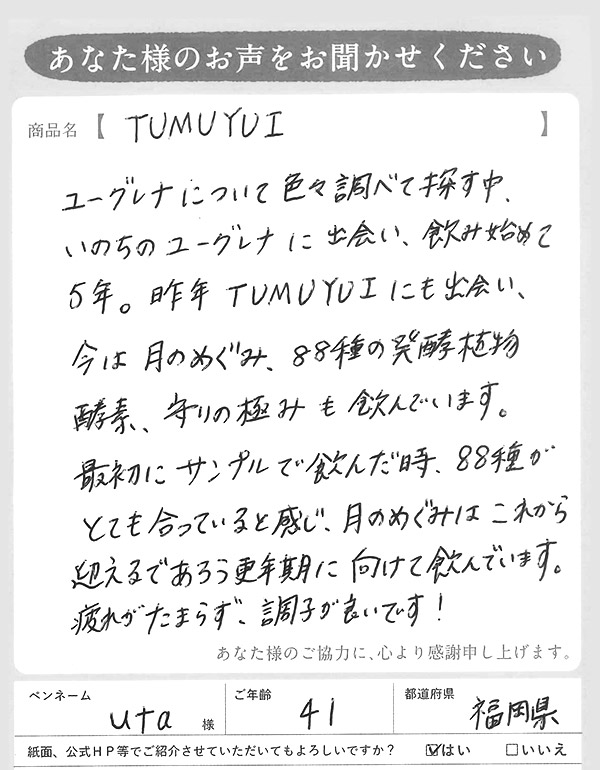 あなた様のお声をお聞かせください
商品名【 TUMUYUI 】
ユーグレナについて色々調べて探す中、
いのちのユーグレナに出会い、飲み始めて
5年。昨年TUMUYUIにも出会い、
今は月のめぐみ、88種の発酵植物
酵素、守りの極みも飲んでいます。
最初にサンプルで飲んだ時、88種が
とても合っていると感じ、月のめぐみはこれから
迎えるであろう更年期に向けて飲んでいます。
疲れがたまらず、調子が良いです!
あなた様のご協力に、心より感謝申し上げます。
ペンネーム uta 様 ご年齢 41 都道府県 福岡県
紙面、公式HP等でご紹介させていただいてもよろしいですか? ☑はい □いいえ